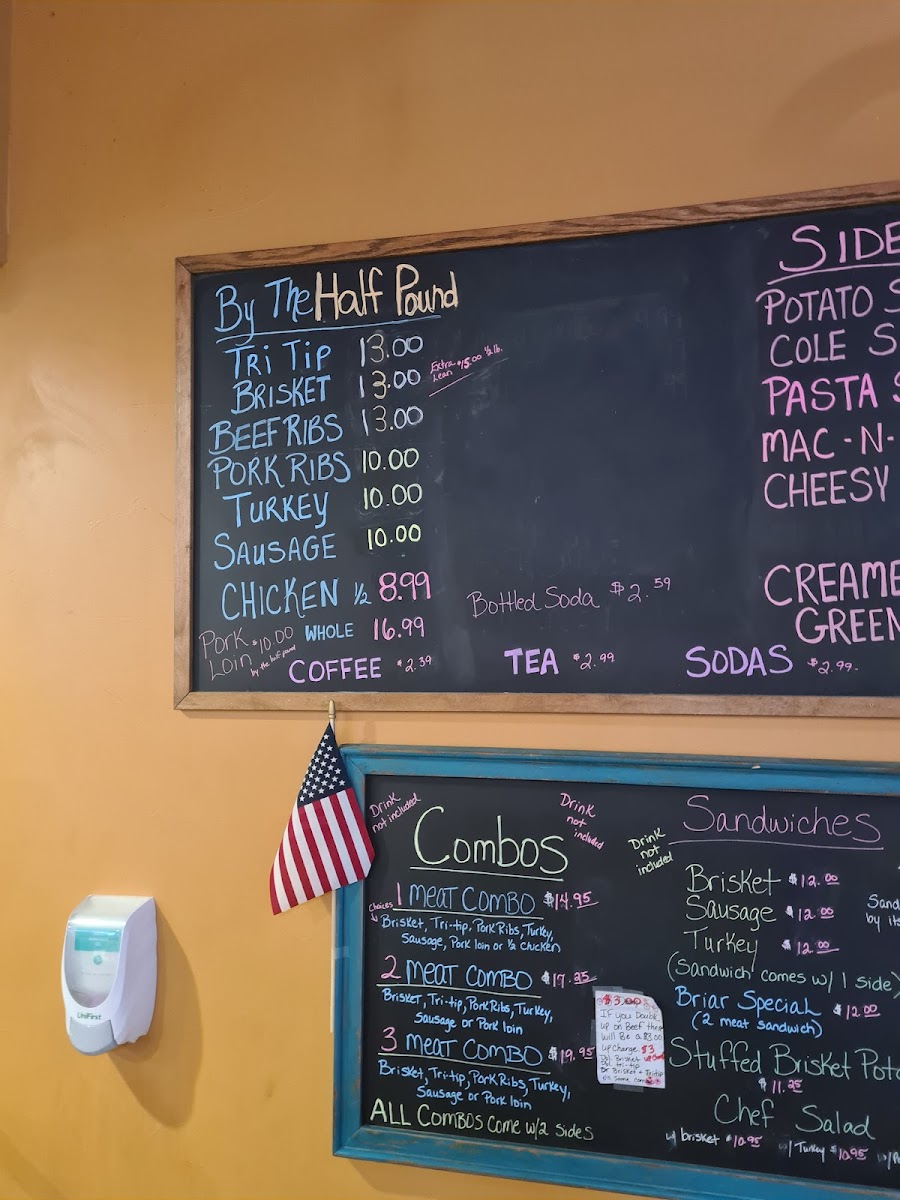 By The Half Pound
TRI TIP 13.00
BRISKET 13.00 Extra Lean $15.00 ½ lb.
BEEF RIBS 13.00
PORK RIBS 10.00
TURKEY 10.00
SAUSAGE 10.00
CHICKEN ½ 8.99
WHOLE 16.99
Pork Loin $10.00 by the half pound
COFFEE $2.39
Bottled Soda $2.59
TEA $2.99
SODAS $2.99
SIDE
POTATO S
COLE S
PASTA S
MAC-N-
CHEESY
CREAME
GREEN
Drink not included
Combos
Drink not included
choices
1 MEAT COMBO $14.95
Brisket, Tri-tip, Pork Ribs, Turkey,
Sausage, Pork loin or ½ Chicken
2 MEAT COMBO
Brisket, Tri-tip, Pork Ribs, Turkey,
Sausage or Pork loin
3 MEAT COMBO $19.95
Brisket, Tri-tip, Pork Ribs, Turkey,
Sausage or Pork loin
ALL COMBOS COME W/2 SIDES
$3.00
If you Double
up on Beef
will Be a $3.00
upcharge. $3
Drink not included
Sandwiches
Brisket $12.00
Sausage $12.00
Turkey $12.00
(Sandwich comes w/ 1 side)
Briar Special $12.00
(2 meat sandwich)
Stuffed Brisket Pota
$11.25
Chef Salad
w/ brisket $10.95 w/ Turkey $10.95
Sand
by its
UniFirst